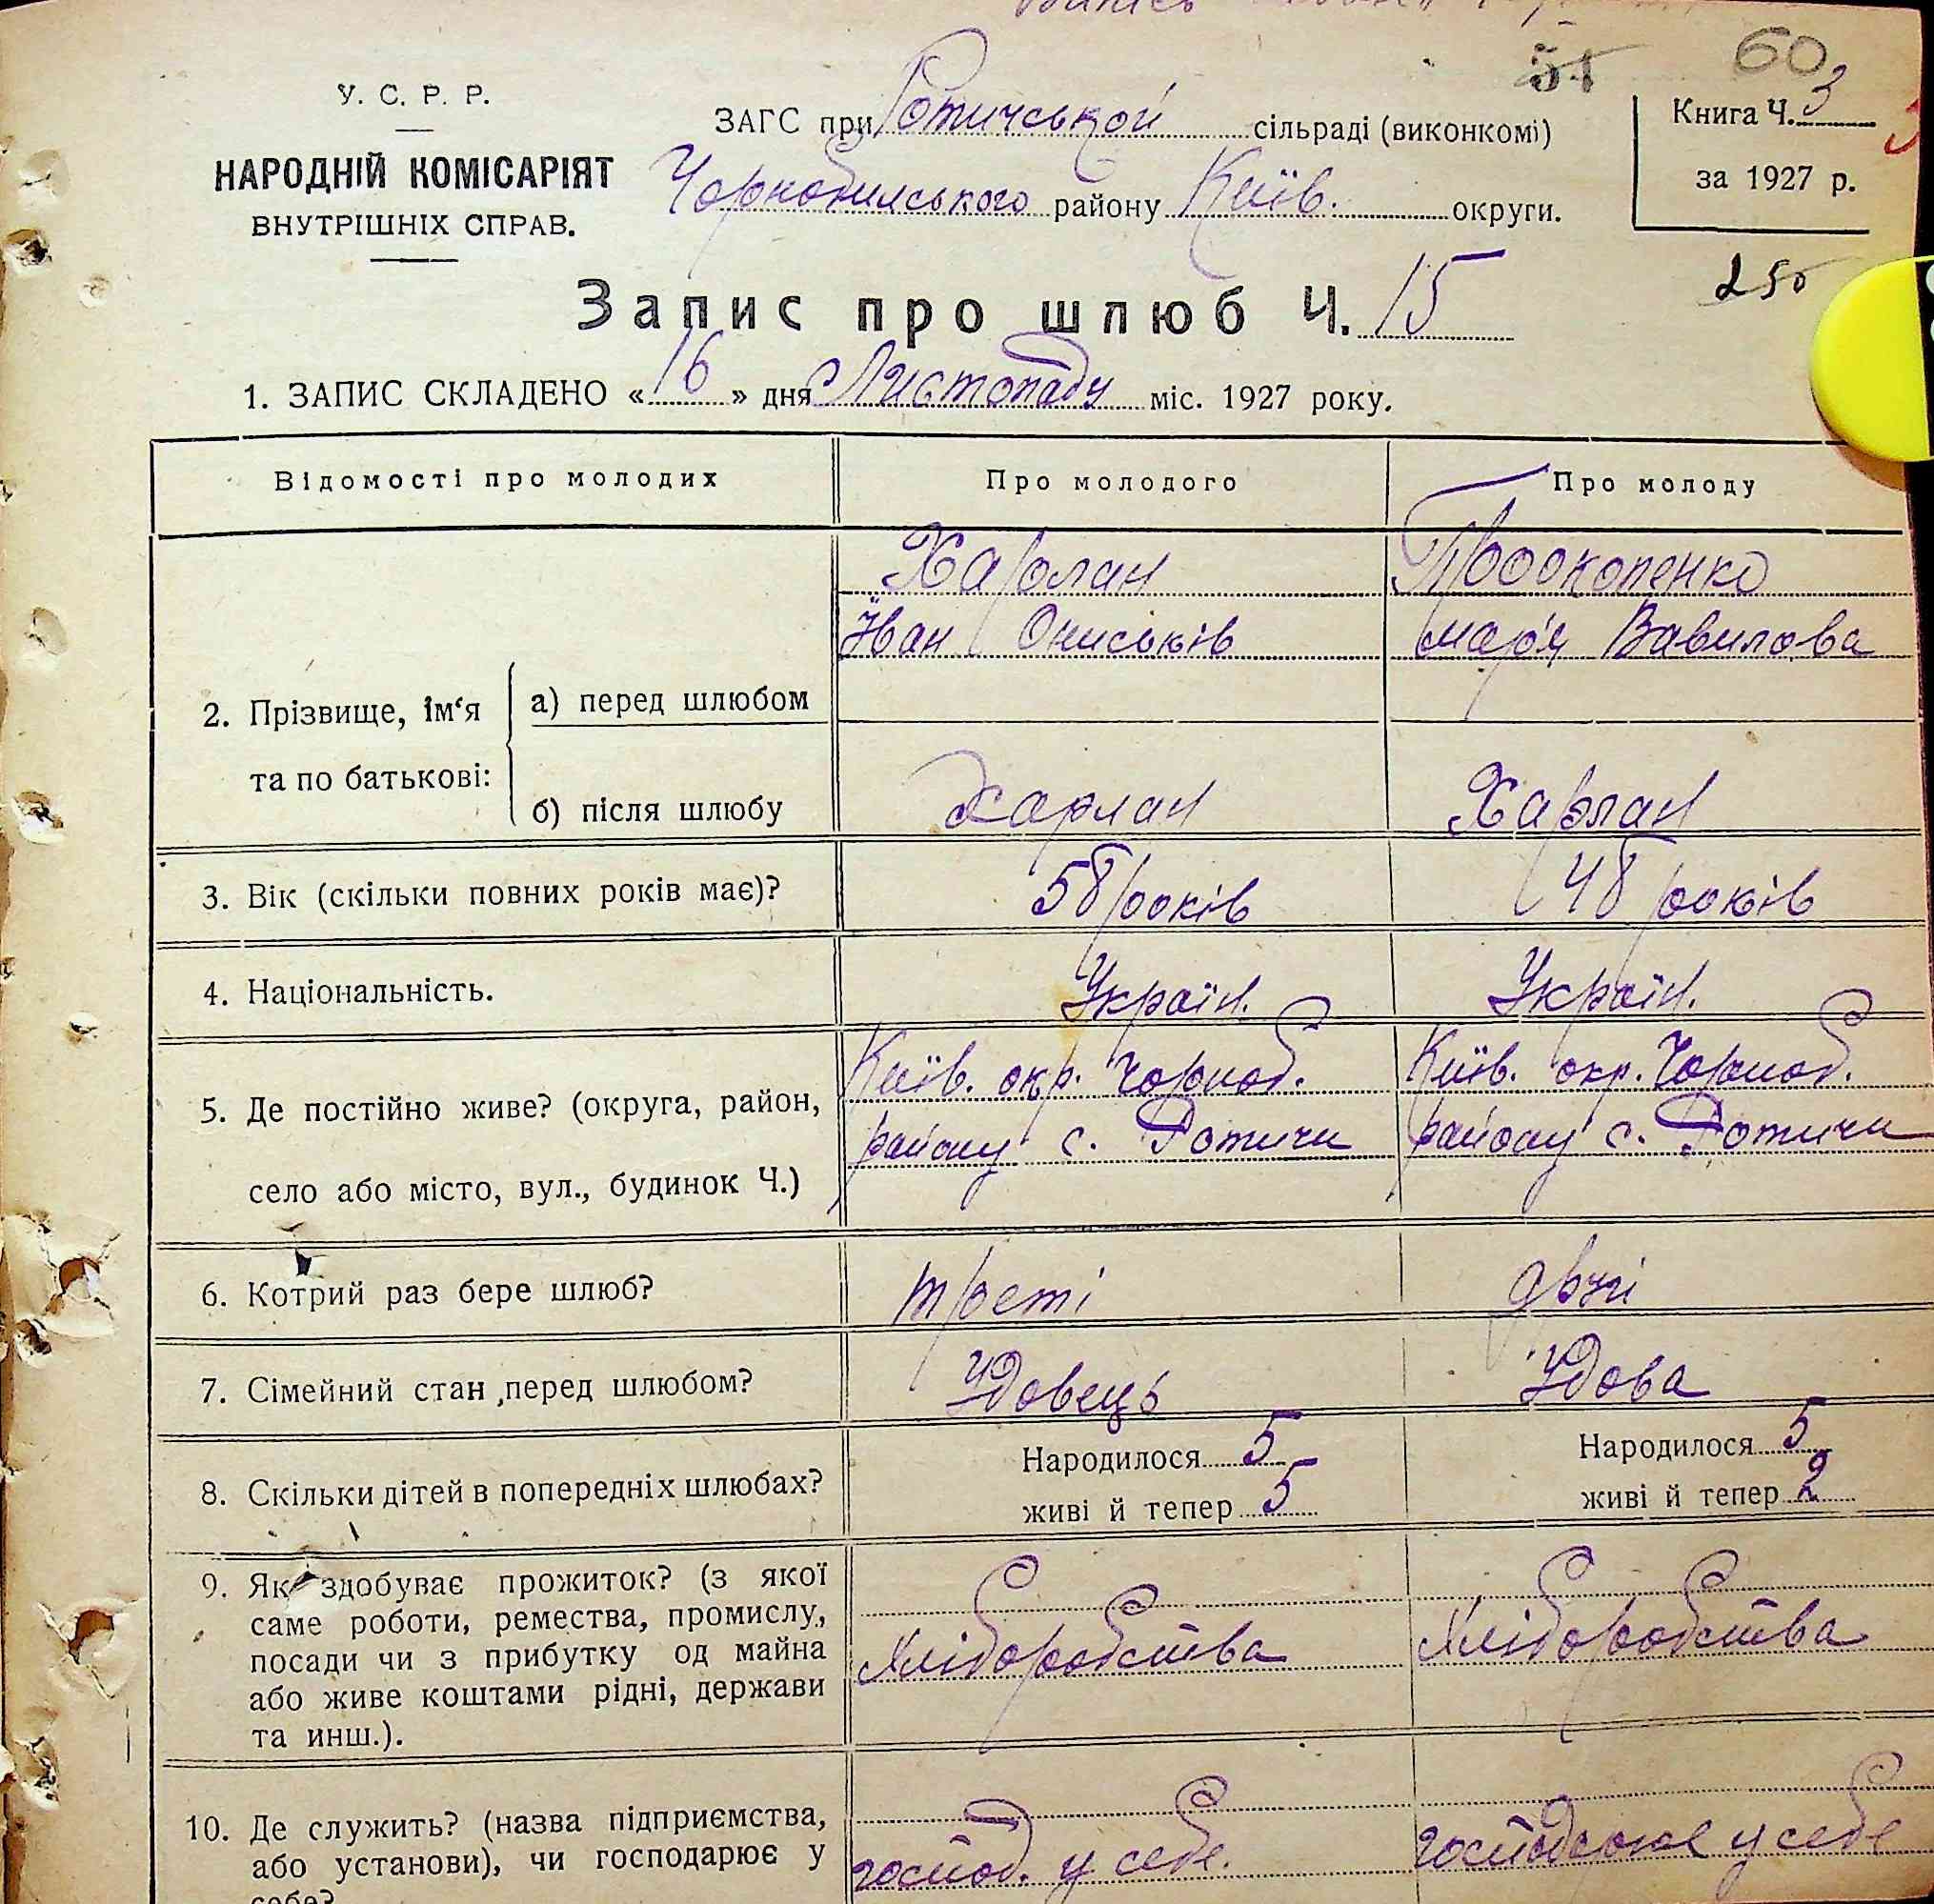 51 60
У. С. Р. Р.
НАРОДНІЙ КОМІСАРІЯТ
ВНУТРІШНІХ СПРАВ.
ЗАГС при Ротичськой сільраді (виконкомі)
Чорнобилського району Київ. округи.
Книга Ч. 3
за 1927 р.
250
Запис про шлюб Ч. 15
1. ЗАПИС СКЛАДЕНО «16» дня Листопаду міс. 1927 року.
Відомості про молодих Про молодого Про молоду
Харлан Прокопенко
Іван Ониськів Мар'я Вавилова
2. Прізвище, ім‘я та по батькові: а) перед шлюбом
б) після шлюбу Харлан Харлан
3. Вік (скільки повних років має)? 58 років 48 років
4. Національність. Україн. Україн.
5. Де постійно живе? (округа, район, Київ. окр. Чорноб. Київ. окр. Чорноб.
село або місто, вул., будинок Ч.) району с. Ротичи району с. Ротичи
6. Котрий раз бере шлюб? треті
7. Сімейний стан перед шлюбом? Удовець Удова
8. Скільки дітей в попередніх шлюбах? Народилося 5 Народилося 5
живі й тепер 5 живі й тепер 2
9. Як здобуває прожиток? (з якої
саме роботи, ремества, промислу,
посади чи з прибутку од майна Хліборобства Хліборобства
або живе коштами рідні, держави
та инш.).
10. Де служить? (назва підприємства,
або установи), чи господарює у господ. у себе. господарює у себе
себе?